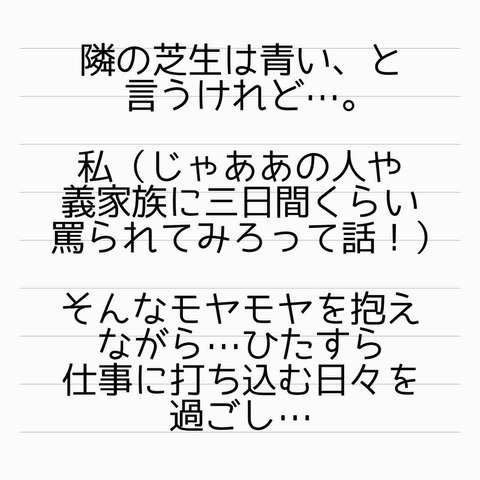 隣の芝生は青い、と
言うけれど…。
私（じゃああの人や
義家族に三日間くらい
罵られてみろって話！）
そんなモヤモヤを抱え
ながら…ひたすら
仕事に打ち込む日々を
過ごし…